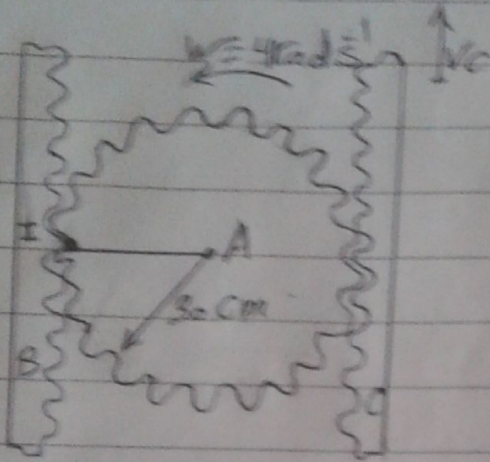 W = 4rad s⁻¹
Vc
I
A
30 cm
B
C